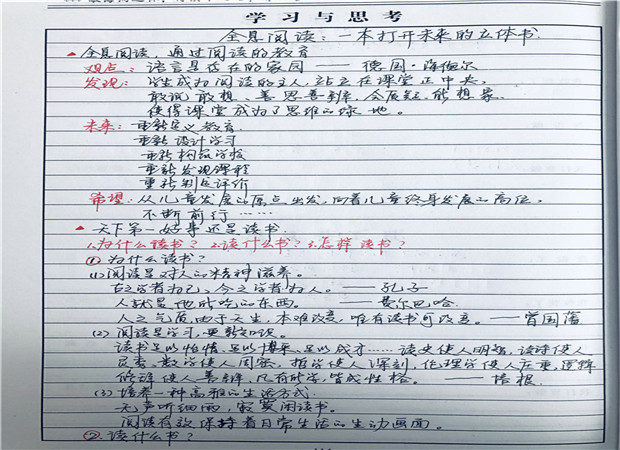 学习与思考
全息阅读：一本打开未来的立体书.
▲全息阅读，通过阅读的教育
观点：语言是存在的家园 —— 德国·海德尔
发现：学生成为阅读的主人，站立在课堂正中央，
敢说敢想、善思善辩、会质疑、能想象.
使得课堂成为了思维的绿地。
未来：重新定义教育.
重新设计学习
重新构筑学校
重新发现课程
重新制定评价
希望：从儿童发展的原点出发，向着儿童终身发展的高位，
不断前行……
▲天下第一好事还是读书.
1.为什么读书？2.读什么书？3.怎样读书？
①为什么读书？
(1)阅读是对人的精神滋养。
古之学者为己，今之学者为人。——孔子
人就是他所吃的东西。——费尔巴哈
人之气质，由于天生，本难改变，唯有读书可改变。——曾国藩
(2)阅读是学习，更新知识。
读书足以怡情，足以博采，足以成才……读史使人明智，读诗使人
灵秀，数学使人周密，哲学使人深刻，伦理学使人庄重，逻辑
修辞使人善辩，凡有所学，皆成性格。——培根
(3)培养一种高雅的生活方式.
无声听细雨，寂寞闲读书。
阅读有效保持着日常生活的生动画面。
②读什么书？